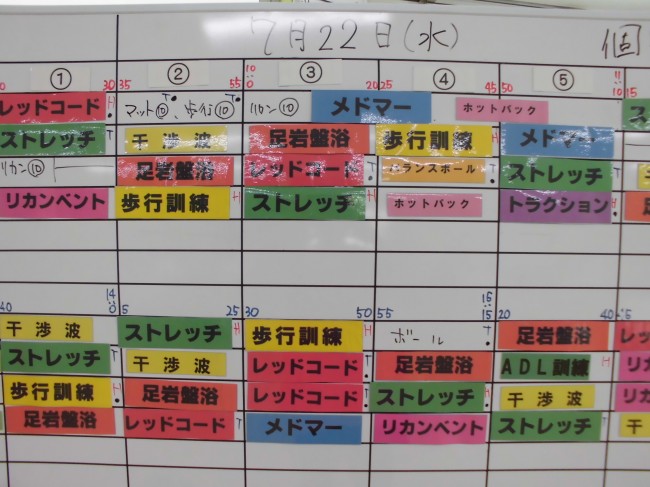 7月22日(水) 個
① ② ③ ④ ⑤
0 30 35 55 10:0 20 25 45 50 11:10 15
レッドコード H マット⑩、歩行⑩ T リカン⑩ メドマー ホットパック
ストレッチ T 干渉波 足岩盤浴 歩行訓練 H メドマー ス
リカン⑩ 足岩盤浴 H レッドコード T バランスボール T ストレッチ T 干
リカンベント 歩行訓練 H ストレッチ H ホットパック トラクション H 足
40 14:0 5 25 30 50 55 15:15 20 40 45
干渉波 T ストレッチ H 歩行訓練 H ボール T 足岩盤浴 H レッ
ストレッチ T 干渉波 レッドコード T 足岩盤浴 ADL訓練 H リカ
歩行訓練 H 足岩盤浴 レッドコード T ストレッチ H 干渉波 リカ
足岩盤浴 レッドコード T メドマー リカンベント ストレッチ T 干